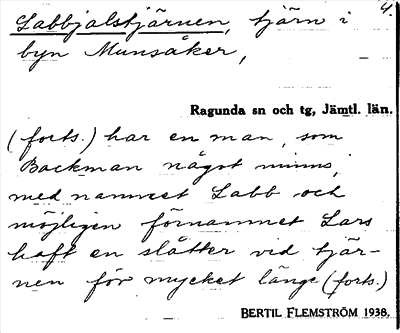 4.
Labbjalstjärnen, tjärn i
byn Munsåker,
Ragunda sn och tg, Jämtl. län.
(forts.) har en man, som
Backman något minns,
med namnet Labb och
möjligen förnamnet Lars
haft en slåtter vid tjär-
nen för mycket länge (forts.)
BERTIL FLEMSTRÖM 1938.